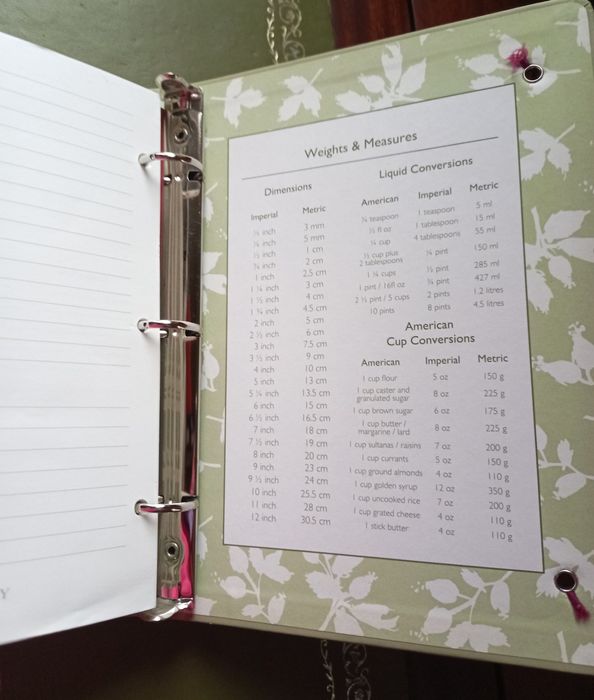 Weights & Measures
Dimensions
Imperial Metric
⅛ inch 3 mm
¼ inch 5 mm
½ inch 1 cm
¾ inch 2 cm
1 inch 2.5 cm
1 ¼ inch 3 cm
1 ½ inch 4 cm
1 ¾ inch 4.5 cm
2 inch 5 cm
2 ½ inch 6 cm
3 inch 7.5 cm
3 ½ inch 9 cm
4 inch 10 cm
5 inch 13 cm
5 ¼ inch 13.5 cm
6 inch 15 cm
6 ½ inch 16.5 cm
7 inch 18 cm
7 ½ inch 19 cm
8 inch 20 cm
9 inch 23 cm
9 ½ inch 24 cm
10 inch 25.5 cm
11 inch 28 cm
12 inch 30.5 cm
Liquid Conversions
American Imperial Metric
teaspoon 1 teaspoon 5 ml
½ fl oz 1 tablespoon 15 ml
¼ cup 4 tablespoons 55 ml
½ cup plus
2 tablespoons ¼ pint 150 ml
1 ¼ cups ½ pint 285 ml
1 pint / 16fl oz ¾ pint 427 ml
2 ½ pint / 5 cups 2 pints 1.2 litres
10 pints 8 pints 4.5 litres
American
Cup Conversions
American Imperial Metric
1 cup flour 5 oz 150 g
1 cup caster and
granulated sugar 8 oz 225 g
1 cup brown sugar 6 oz 175 g
1 cup butter /
margarine / lard 8 oz 225 g
1 cup sultanas / raisins 7 oz 200 g
1 cup currants 5 oz 150 g
1 cup ground almonds 4 oz 110 g
1 cup golden syrup 12 oz 350 g
1 cup uncooked rice 7 oz 200 g
1 cup grated cheese 4 oz 110 g
1 stick butter 4 oz 110 g
Y